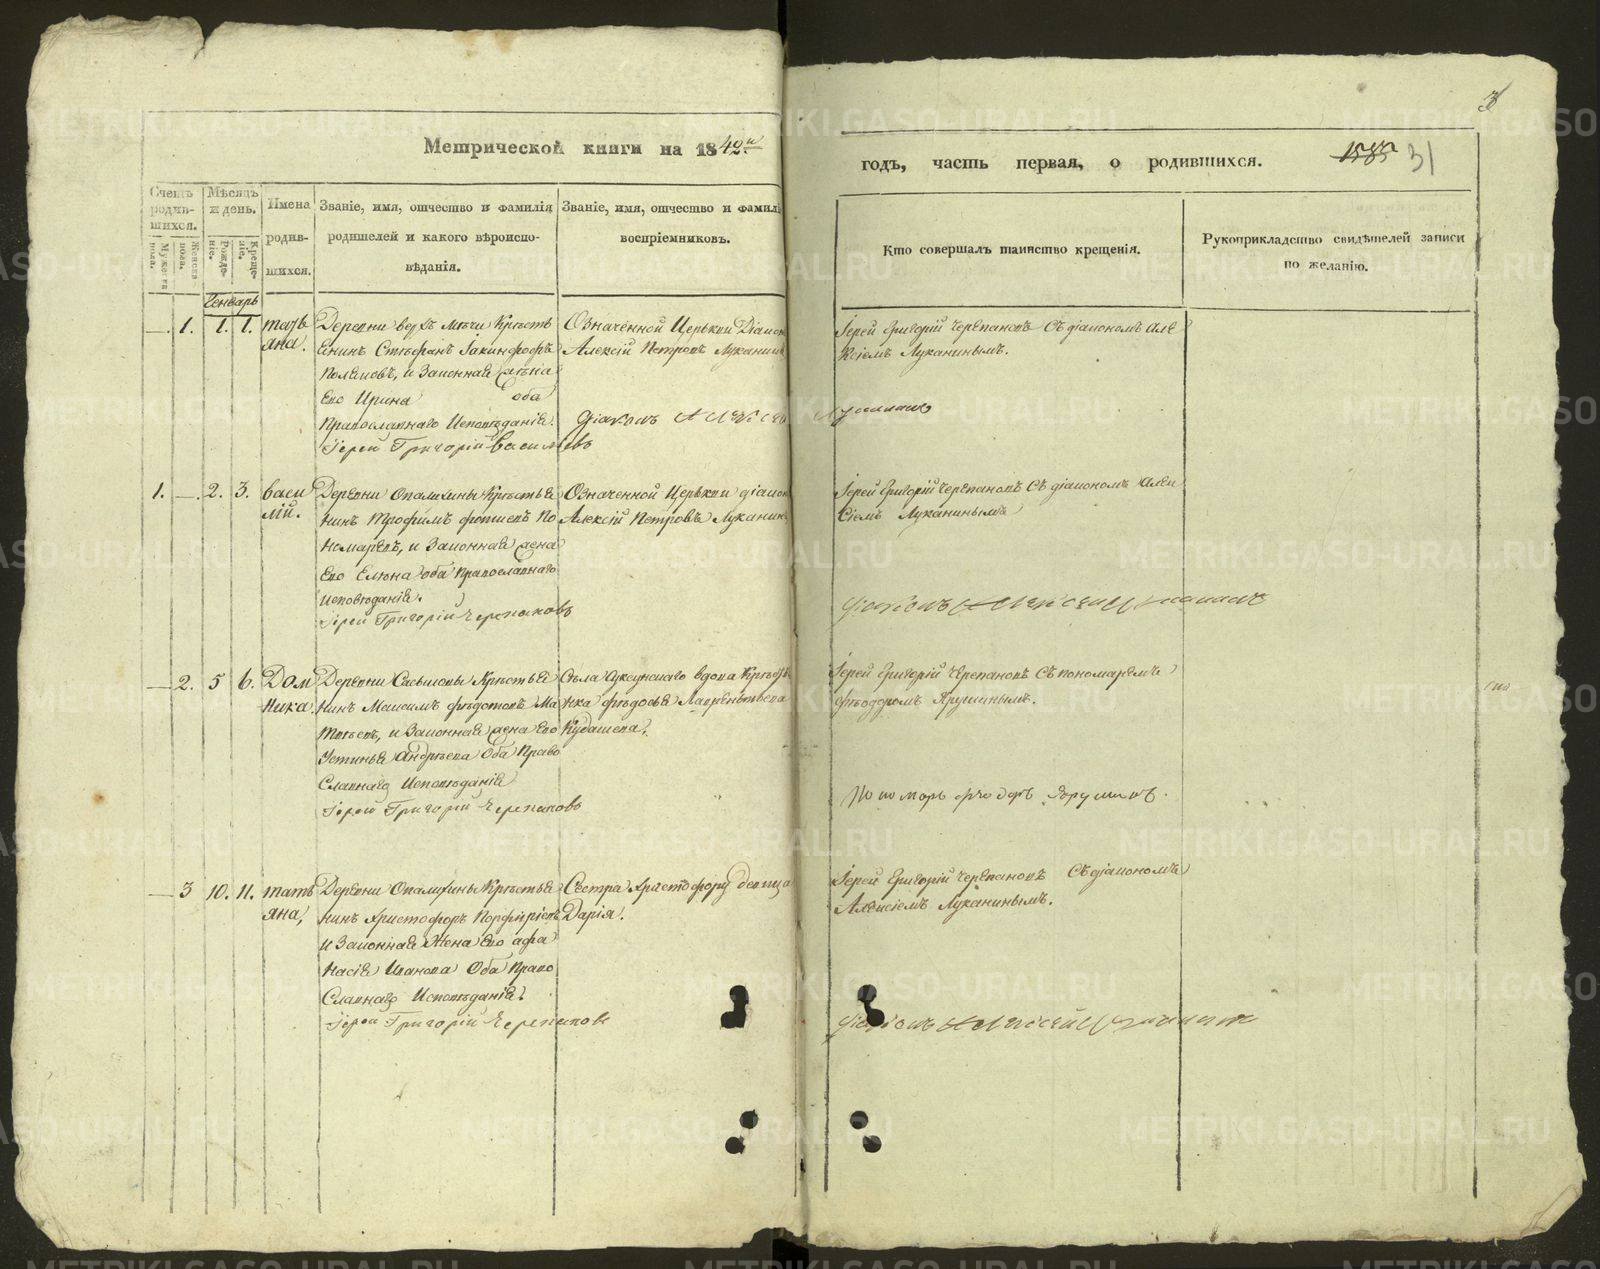 Метрической книги на 1842й
годъ, часть первая, о родившихся.
1585 31
3
Счетъ родив-шихся.
Мужеска пола.
Женска пола.
Мѣсяцъ и день.
Рожде-нія.
Креще-нія.
Имена родив-шихся.
Званіе, имя, отчество и фамилія
родителей и какого вѣроиспо-
вѣданія.
Званіе, имя, отчество и фамилі
воспріемниковъ.
Кто совершалъ таинство крещенія.
Рукоприкладство свидѣтелей записи
по желанію.
Генварь
— 1. 1. 1. татья
яна.
Деревни верхъ Мечи Крестья
Енинъ Стефанъ Іакинфовъ
Поляновъ, и Законная жена
Его Ирина оба
Православнаго Исповѣданія.
Іерей Григорій
Означенной Церькви Діакон
Алексій Петровъ Луканинъ
Діаконъ Алексѣй Луканинъ
Іерей Григорій Черепановъ Съ діакономъ Але
ксіемъ Луканинымъ.
1. — 2. 3. васи
лій.
Деревни Опалихины Крестья
нинъ Трофимъ Фотиевъ По
номаревъ, и Законная жена
Его Елена оба православнаго
исповѣданія.
Іерей Григорій Черепановъ
Означенной Церькви діакон
Алексій Петровъ Луканинъ
Іерей Григорій Черепановъ Съ діакономъ Алек
сіемъ Луканинымъ
Діаконъ Алексѣй Луканинъ
— 2. 5 6. Дом
ника.
Деревни Савиновы Крестья
нинъ Максимъ Федотовъ Ма
твеевъ, и Законная жена Его
Устинья Андреева Оба Право
Славнаго Исповѣданія
Іерей Григорій Черепановъ
Села Аксунскаго вдова Крестья
нка Федосья Лаврентьева
Кудашева.
Іерей Григорій Черепановъ Съ пономаремъ
Феодоромъ Ярушинымъ.
Пономарь Феодоръ Ярушинъ.
— 3 10. 11. татья
яна,
Деревни Опалихины Крестья
нинъ Христофоръ Порфиріевъ
и Законная Жена Его Афа
насія Иванова Оба Право
Славнаго Исповѣданія.
Іерей Григорій Черепановъ
Сестра Христофору девица
Дарія.
Іерей Григорій Черепановъ Съ діакономъ
Алексіемъ Луканинымъ.
Діаконъ Алексѣй Луканинъ
METRIKI.GASO-URAL.RU